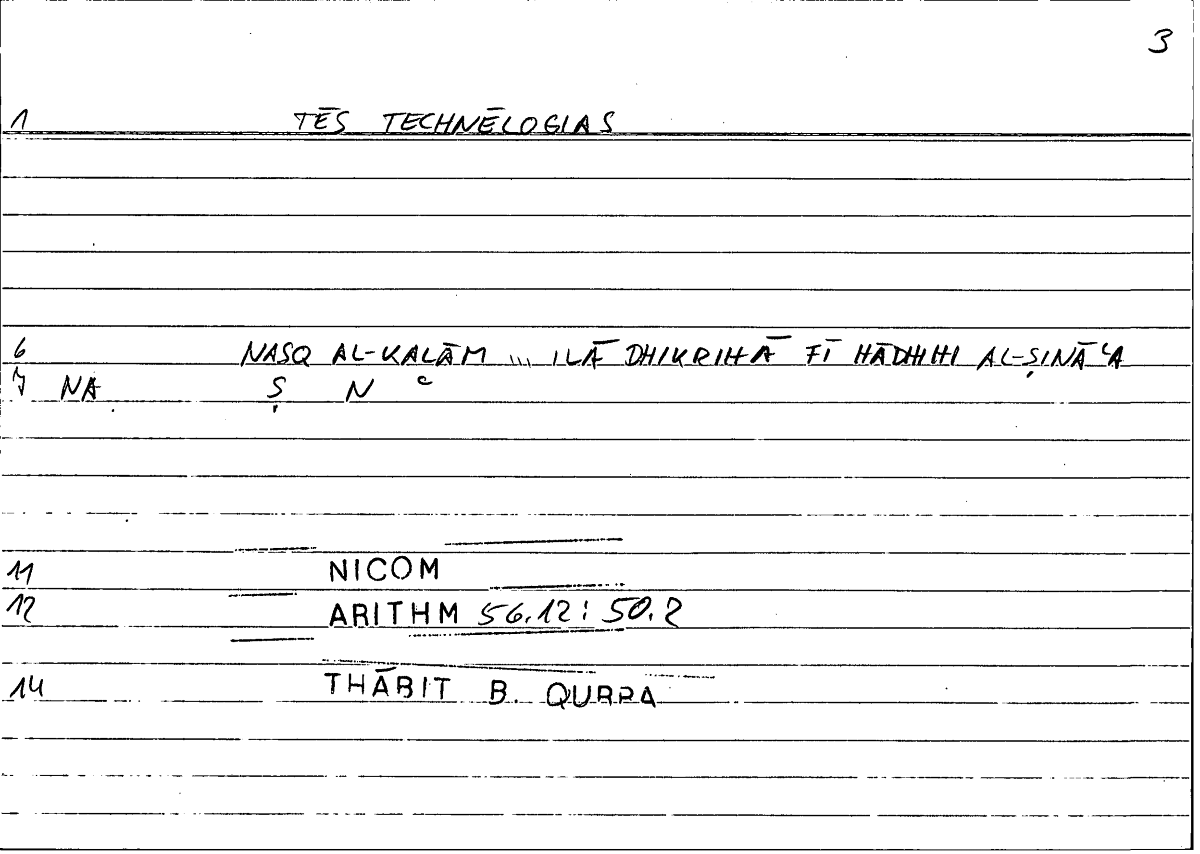 3
1 TĒS TECHNĒLOGIAS
6 NASQ AL-KALĀM ... ILĀ DHIKRIHĀ FĪ HĀDHIHI AL-ṢINĀʿA
7 NA Ṣ N ʿ
11 NICOM
12 ARITHM 56.12 : 50.2
14 THĀBIT B. QURRA